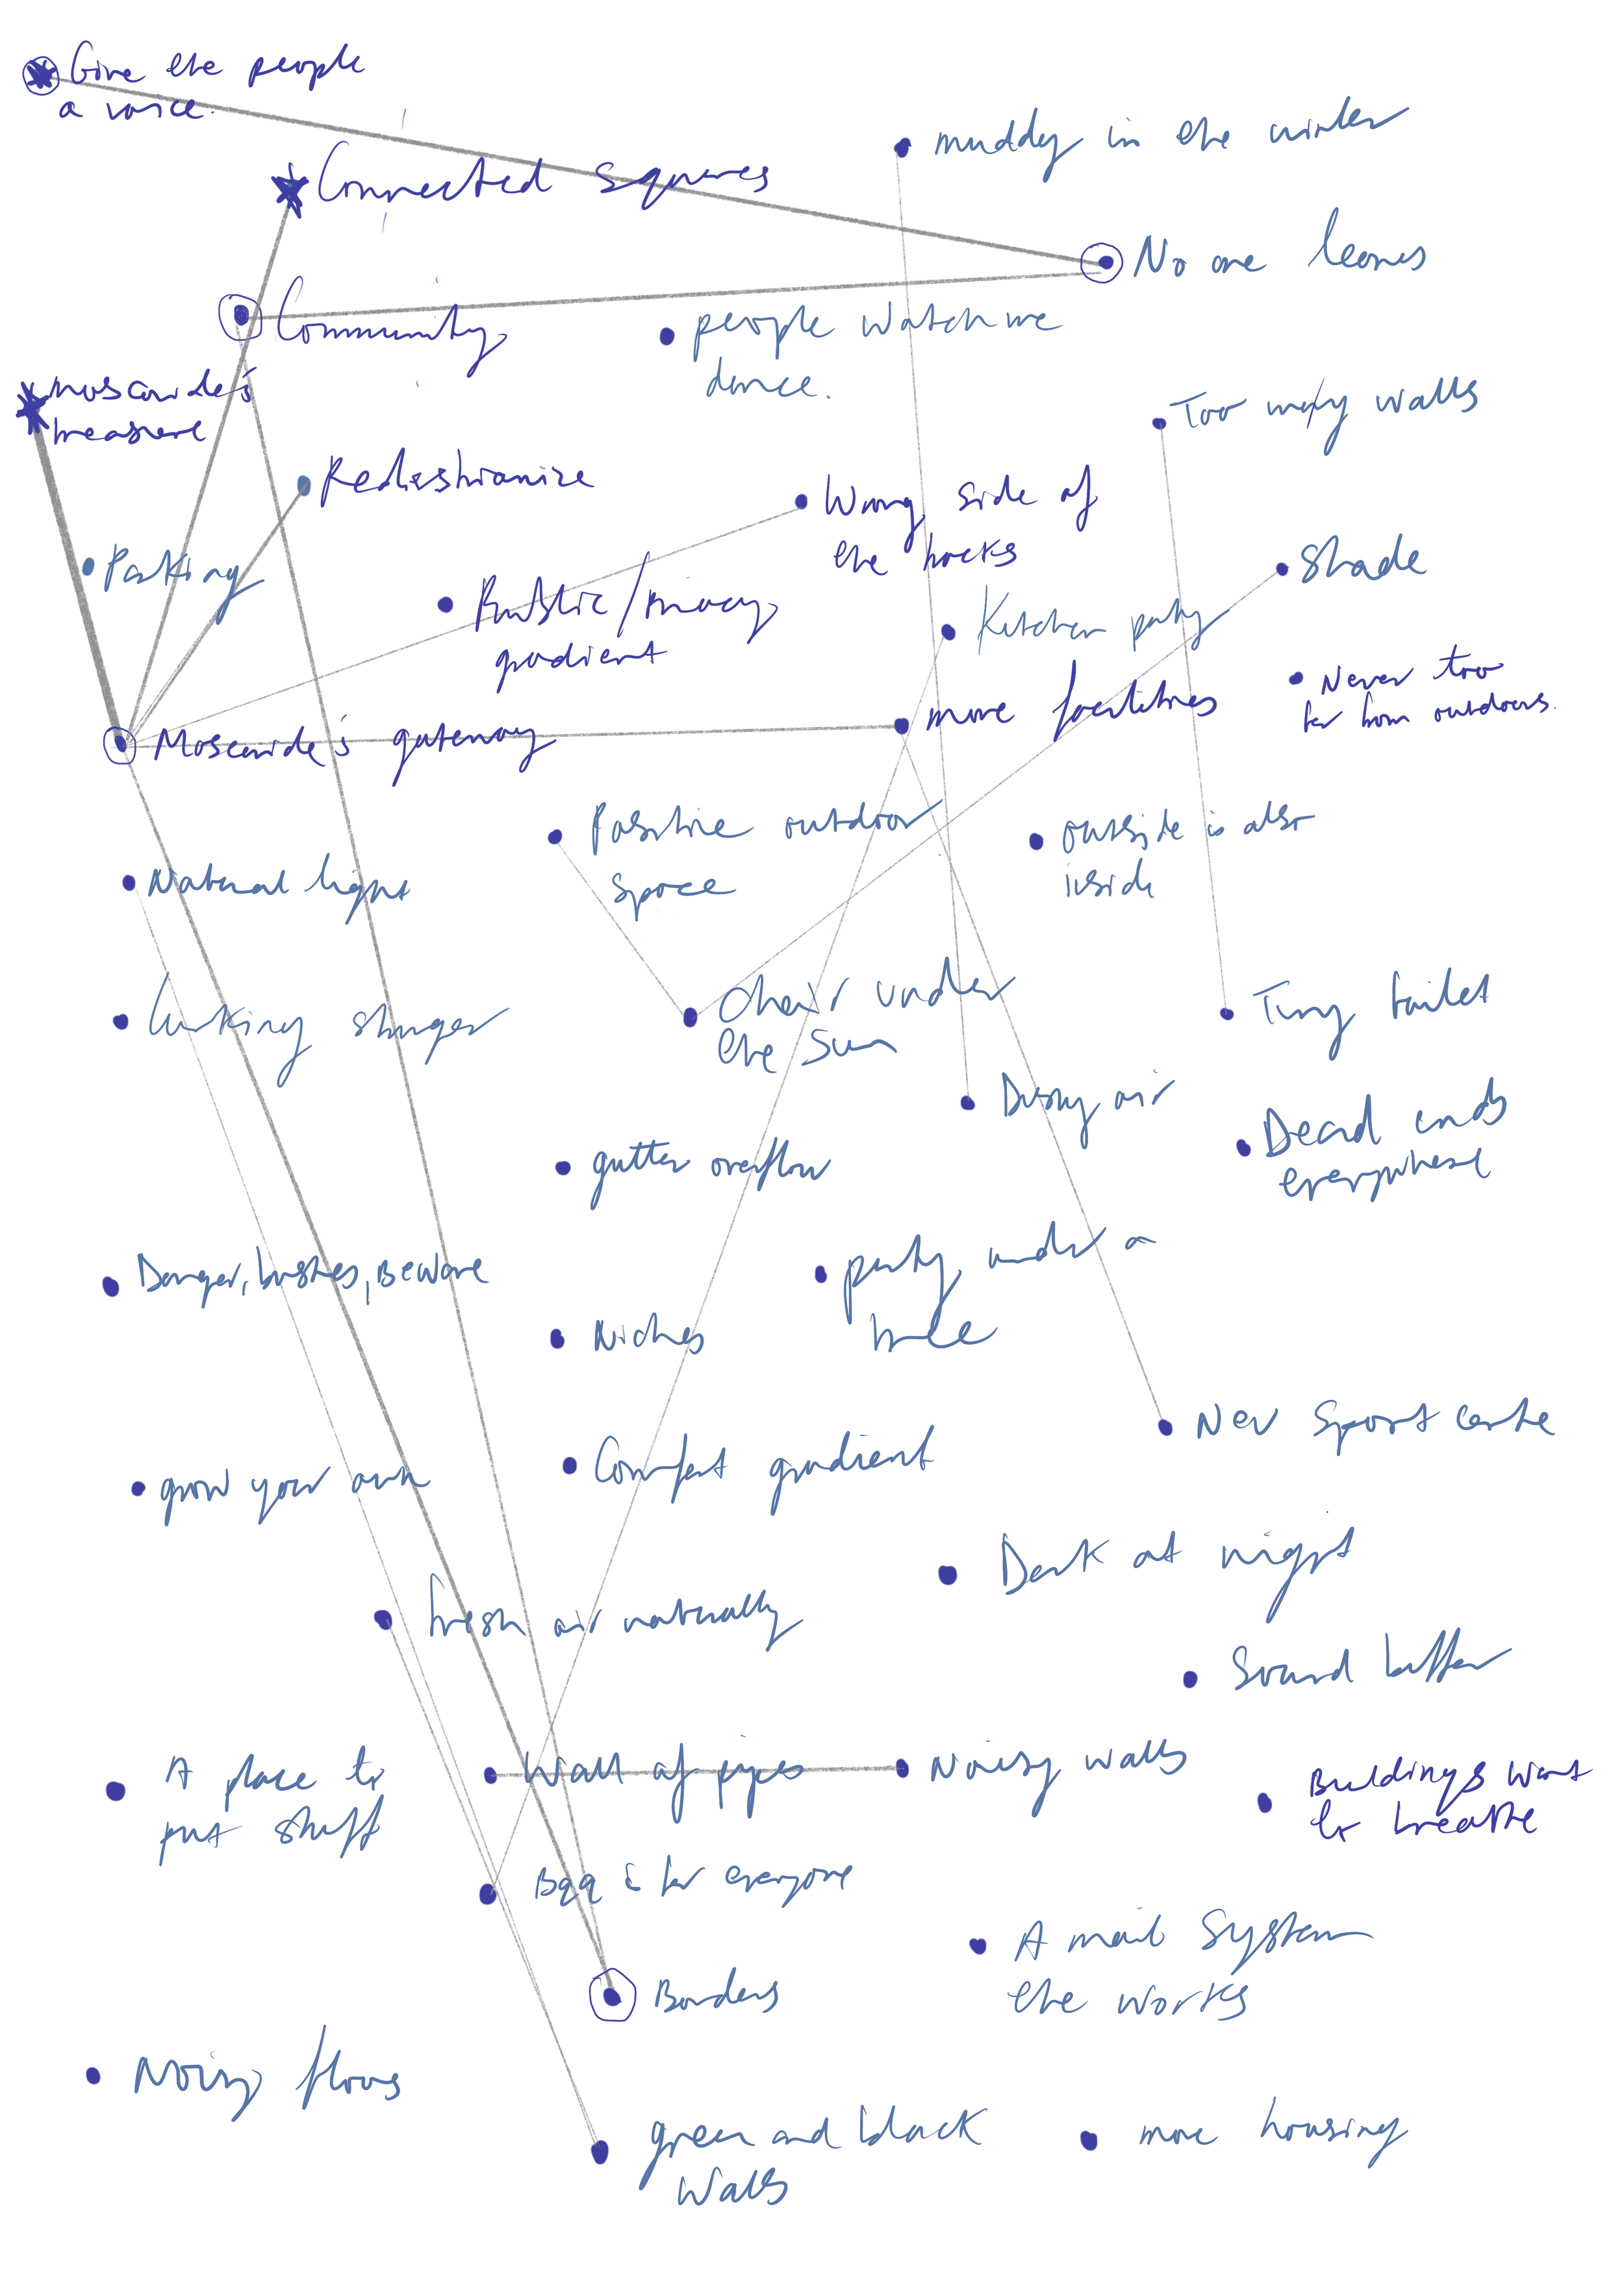 Give the people
a voice.
Connected squares
muddy in the winter
No one leaves
Community
people watch me
dance.
moscavide's
treasure
Too many walls
Pedestrianize
Wrong side of
the tracks
Parking
Shade
Public/privacy
gradient
Kitchen party
Never too
far from outdoors.
Moscavide's gateway
more facilities
Positive outdoor
space
outside is also
inside
Natural light
Lurking stranger
Chair under
the sun
Tiny toilet
Dusty air
Dead ends
everywhere
gutter overflow
Danger, bushes, Beware
party under a
tree
Niches
New Sport centre
Comfort gradient
grow your own
Dark at night
fresh air naturally
Sound buffer
A place to
put stuff
Wall of pipes
Noisy walls
Buildings want
to breathe
Bqq is for everyone
A mail System
the works
Borders
Noisy floors
green and black
walls
more housing